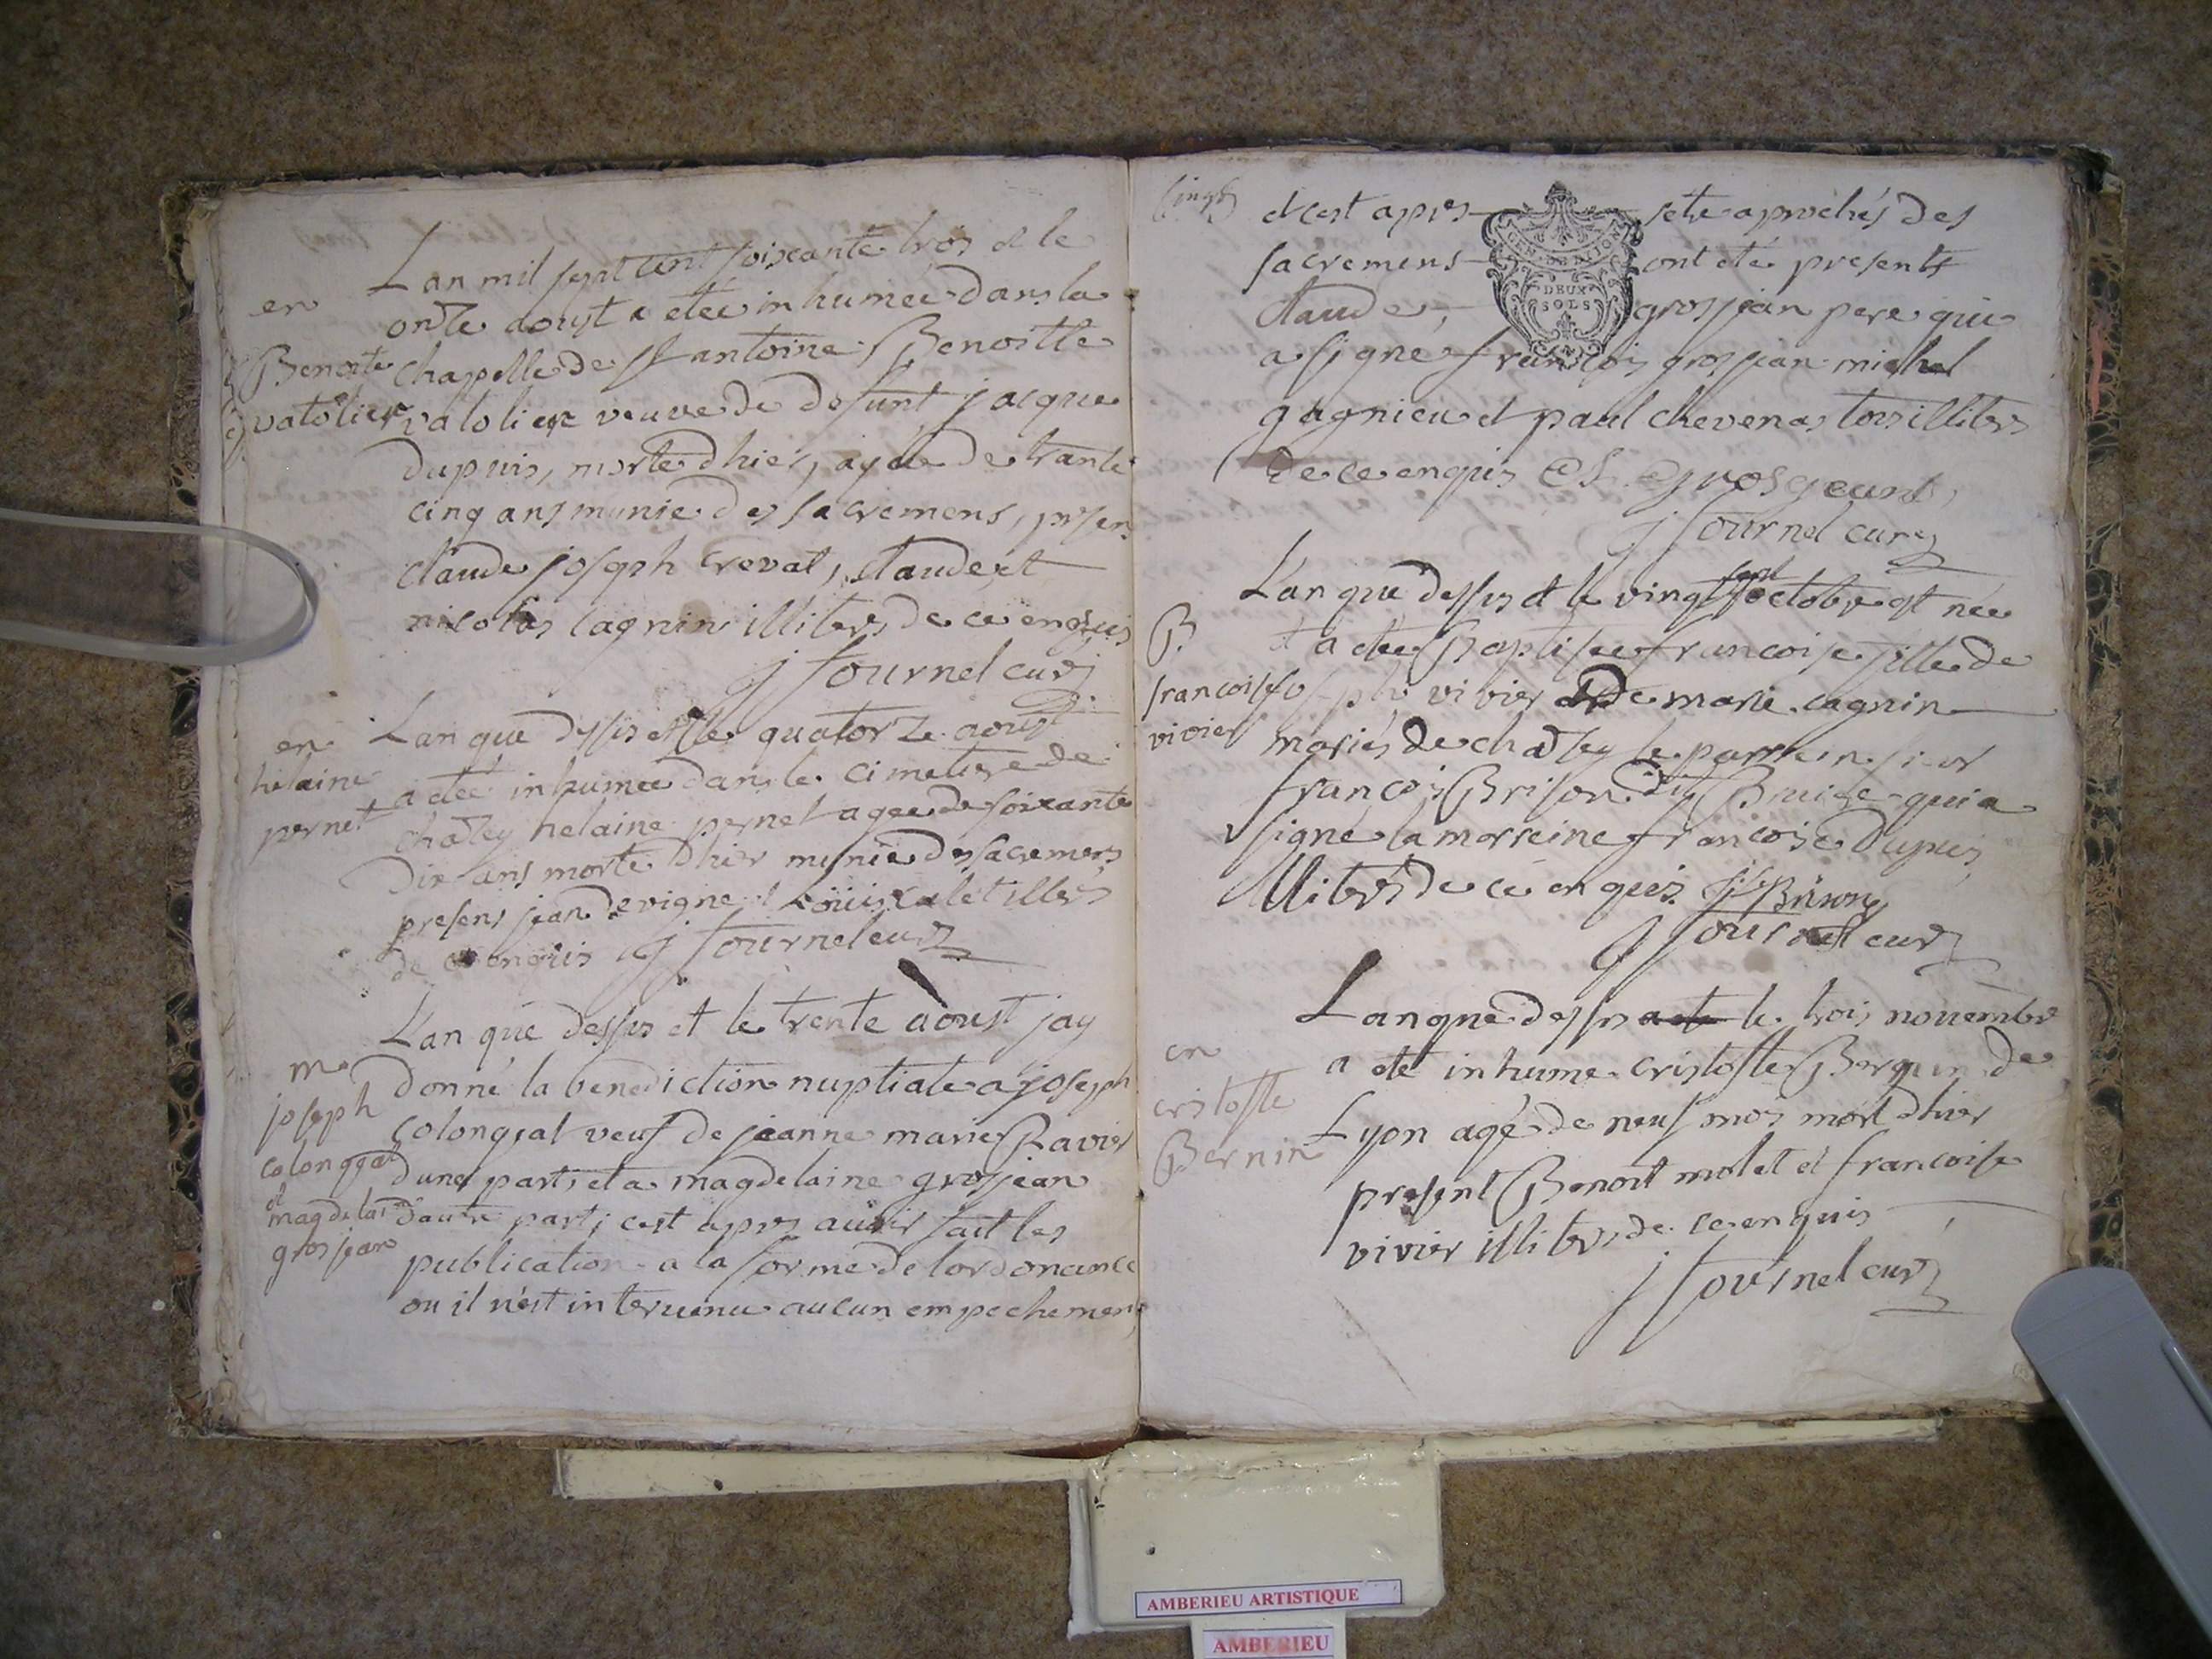 Lan mil sept cent soixante trois et le
en
onze aoust a etée inhumée dans la
Benoite
chapelle de st antoine Benoitte
vatolier
vatolier veuve de defunt jacque
dupuis, morte dhier, agée de trante
cinq ans munie des sacremens, presen
claude joseph creval, claude et
nicolas cagnin illiteres de ce enquis
j fournel curé
Lan que dessus et le quatorze aoust
en
helaine
pernet
a eteé inhumeé dans le cimetiere de
chazey helaine pernet agee de soixante
dix ans morte dhier munie des sacremens
presens jean devigne et loüis valet illres
de ce enquis j fournel curé
Lan que dessus et le trente aoust jay
m
joseph
colongeat
et
magdelai
grosjean
donné la benediction nuptiale a joseph
colongeat veuf de jeanne marie Ravier
dune part, et a magdelaine grosjean
dautre part; cest apres avoir fait les
publication a la forme de lordonance
ou il n'est intervenu aucun empechemen
et cest apres sete aprochés des
sacremens ont eté presents
claude, grosjean pere qui
GEN. DE DIJON
DEUX
SOLS
a signe francois grosjean michel
gagnieu et paul chevenas tous illiteres
de ce enquis Cl. Grosgeant,
j fournel curé
L'an que dessus et le vingt sept octobre est née
B.
francoise
vivier
et a etee Baptisee francoise fille de
joseph vivier et de marie cagnin
mariés de chazey le parrein sieur
françois Brison dit Bruise qui a
signé la marreine francoise dupuis
illiteres de ce enquis f. Brison
j fournel curé
Lan que dessus a ete le trois novembre
en
cristofle
Bernin
a eté inhumé cristofle Bergnin de
Lyon agé de neuf mois mort dhier
present Benoit molet et francoise
vivier illiteres de ce enquis
j fournel curé
AMBERIEU ARTISTIQUE
AMBERIEU